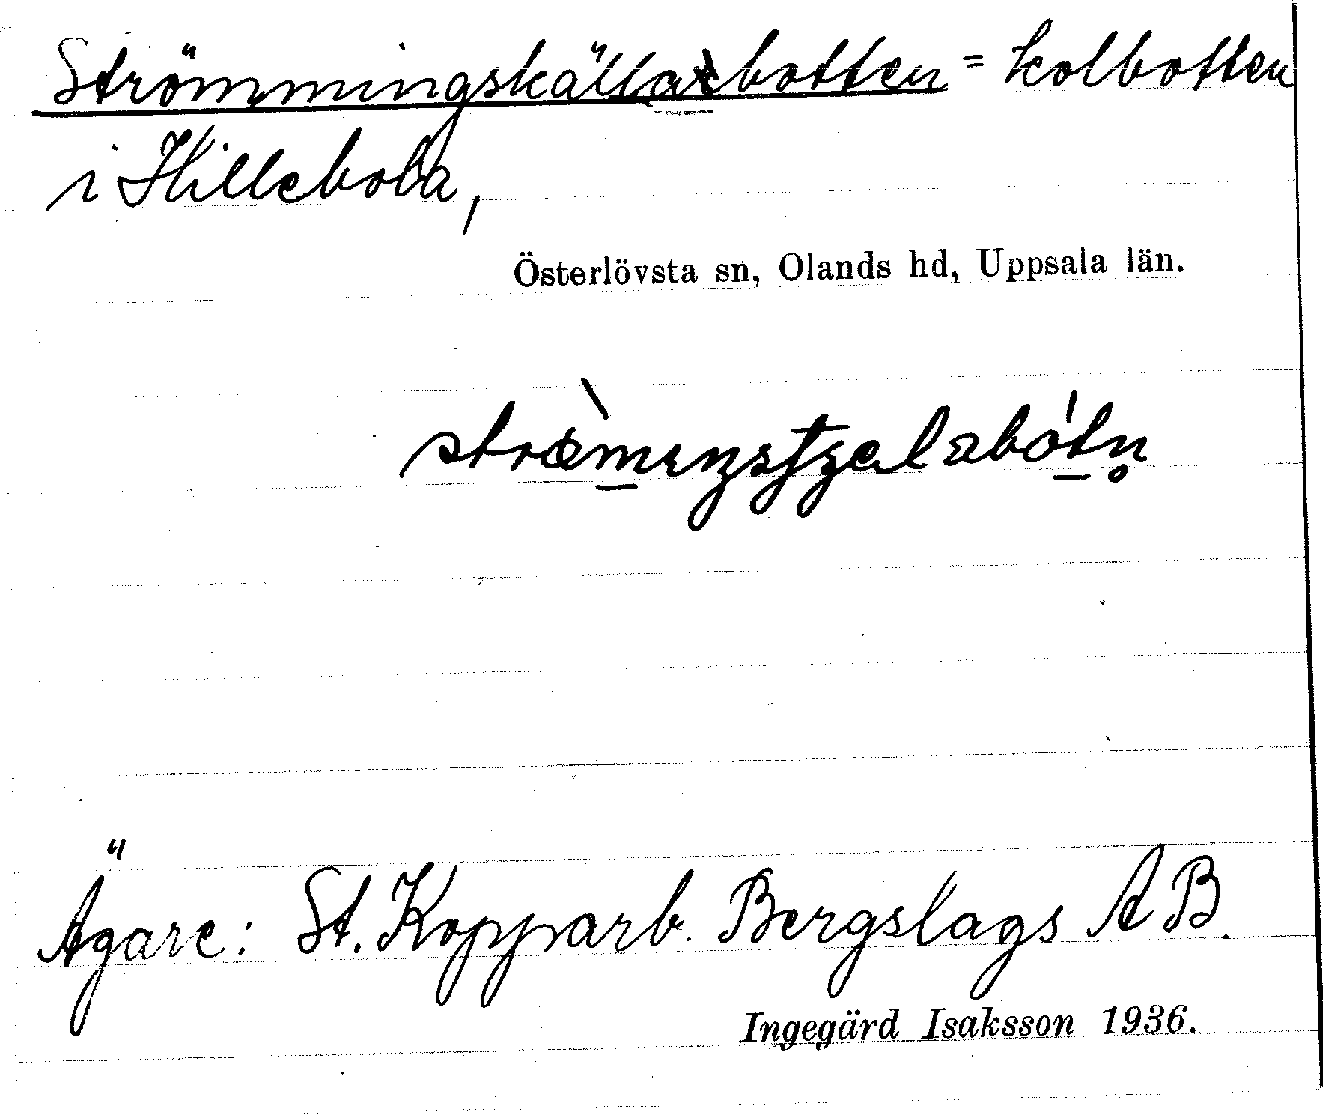 Strömmingskällarbotten = kolbotten
i Hillebola,
Österlövsta sn, Olands hd, Uppsala län.
Ägare: St. Kopparb. Bergslags AB.
Ingegärd Isaksson 1936.